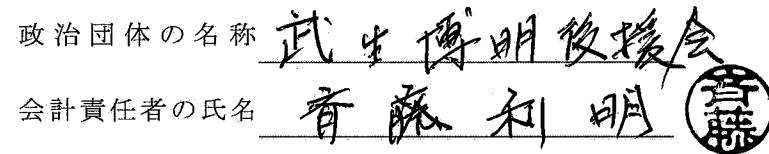 政治団体の名称 武生博明後援会
会計責任者の氏名 斉藤利明 斉藤